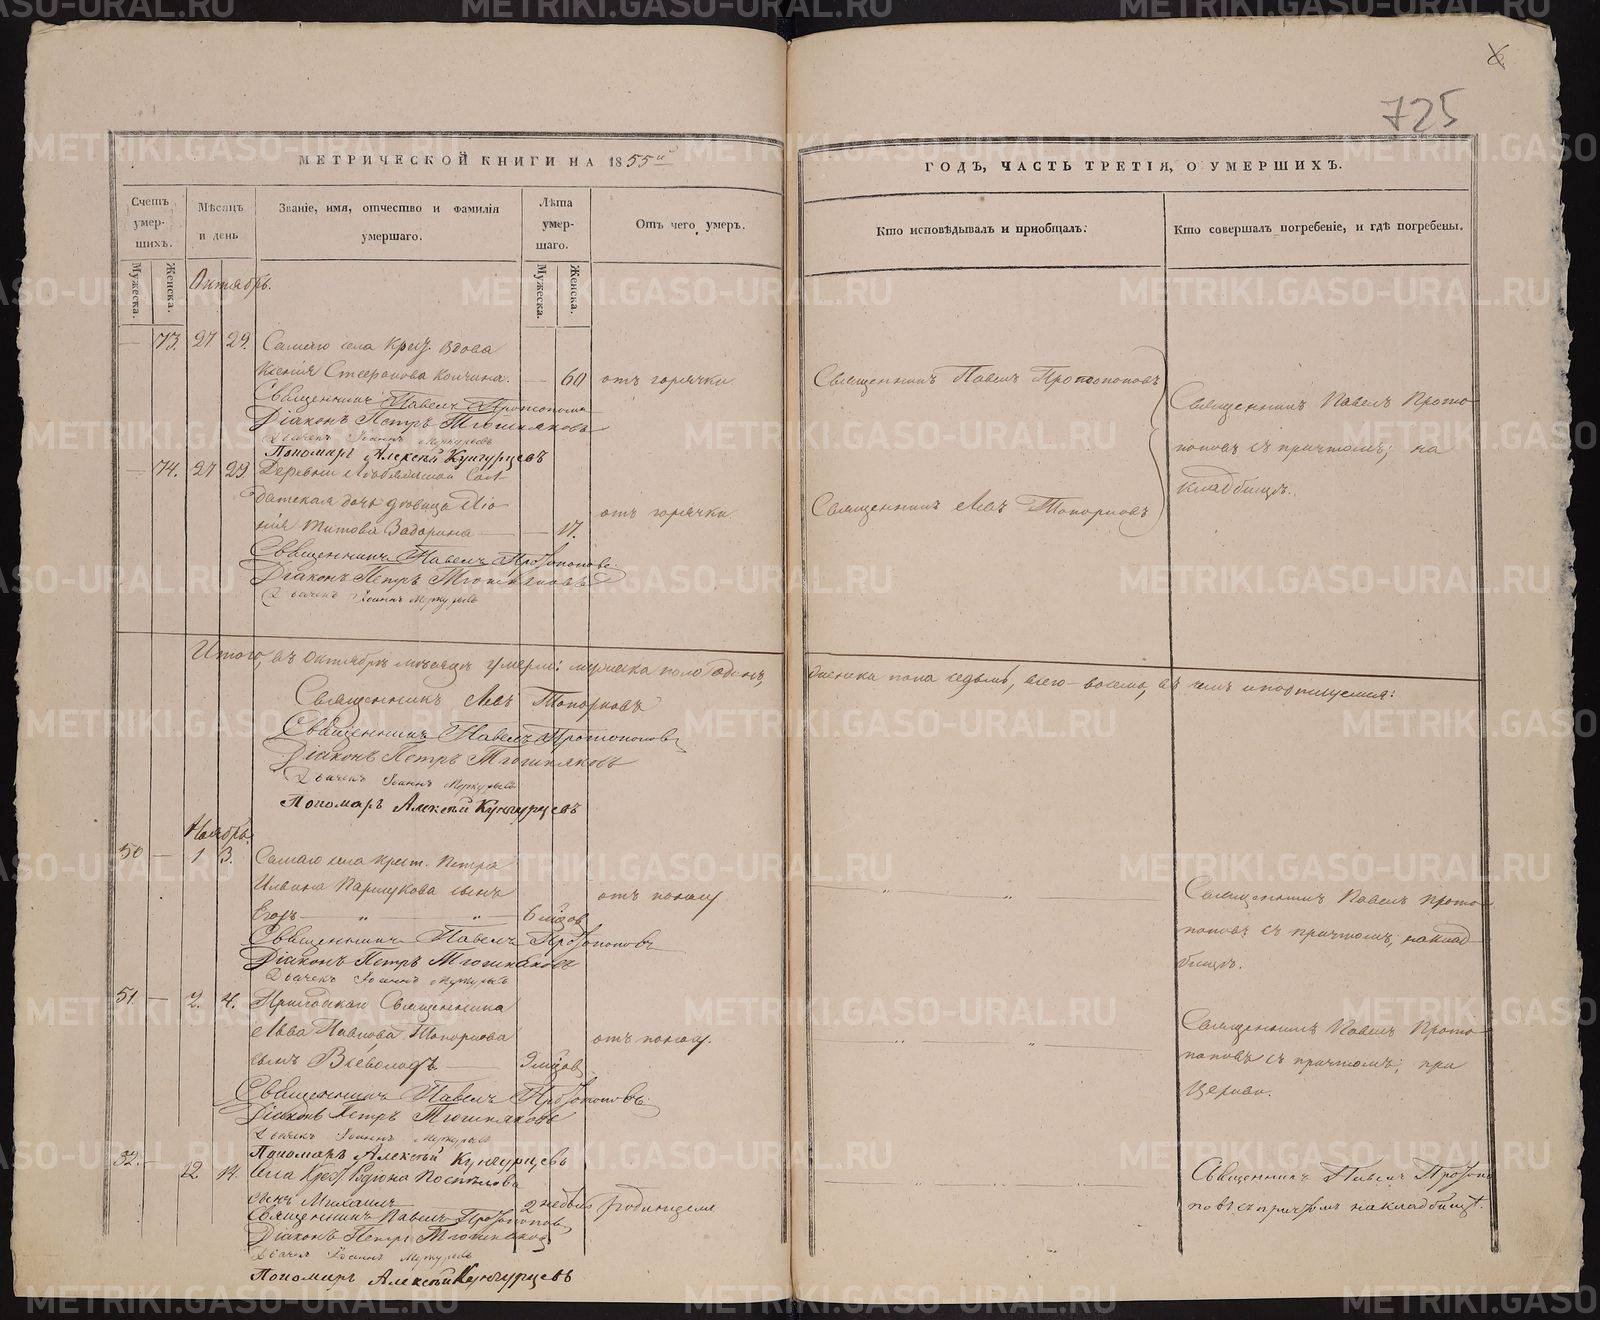 725
МЕТРИЧЕСКОЙ КНИГИ НА 1855й
ГОДЪ, ЧАСТЬ ТРЕТІЯ, О УМЕРШИХЪ.
Счетъ умер-шихъ.
Мужеска.
Женска.
Мѣсяцъ и день
Званіе, имя, отчество и фамилія умершаго.
Лѣта умер-шаго.
Мужеска.
Женска.
Отъ чего умеръ.
Кто исповѣдывалъ и пріобщалъ.
Кто совершалъ погребеніе, и гдѣ погребены.
Октябрь.
73. 27 29. Самаго села Крест. вдова
Ксенія Стефанова Копчина. 60 отъ горячки
Священникъ Павелъ Протопоповъ
Священникъ Павелъ Прото-
поповъ съ причтомъ; на
кладбищѣ.
Священникъ Павелъ Протопоповъ
Діаконъ Петръ Тюшняковъ
Дьячекъ Іоаннъ Меркурьевъ
Пономарь Алексѣй Кунгурцевъ
74. 27 29. Деревни Сол-
датская дочь дѣвица
Титова Задорина 17. отъ горячки
Священникъ Левъ Топорковъ
Священникъ Павелъ Протопоповъ
Діаконъ Петръ Тюшняковъ
Дьячекъ Іоаннъ Меркурьевъ
Итого, въ Октябрѣ мѣсяцѣ умерло: мужеска пола одинъ, женска пола седьмь, всего восемь, въ чемъ и подпишемся:
Священникъ Левъ Топорковъ
Священникъ Павелъ Протопоповъ
Діаконъ Петръ Тюшняковъ
Дьячекъ Іоаннъ Меркурьевъ
Пономарь Алексѣй Кунгурцевъ
Ноябрь.
50 — 1 3. Самаго села крест. Петра
Ильина Паршукова сынъ
Егоръ — 6 мѣсяцов отъ поносу
Священникъ Павелъ Прото-
поповъ съ причтомъ; на клад-
бищѣ.
Священникъ Павелъ Протопоповъ
Діаконъ Петръ Тюшняковъ
Дьячекъ Іоаннъ Меркурьевъ
51. — 2. 4. Приходскаго Священника
Льва Павлова Топоркова
сынъ Всеволодъ. 9 мѣсяцов отъ поносу.
Священникъ Павелъ Прото-
поповъ съ причтомъ; при
Церкви.
Священникъ Павелъ Протопоповъ
Діаконъ Петръ Тюшняковъ
Дьячекъ Іоаннъ Меркурьевъ
Пономарь Алексѣй Кунгурцевъ
52. — 12. 14. Села Крест. Родіона Поспѣлова
сынъ Михаилъ 2 недѣль родимцемъ
Священникъ Павелъ Протопо-
повъ съ причтомъ на кладбищѣ.
Священникъ Павелъ Протопоповъ
Діаконъ Петръ Тюшняковъ
Дьячекъ Іоаннъ Меркурьевъ
Пономарь Алексѣй Кунгурцевъ
METRIKI.GASO-URAL.RU